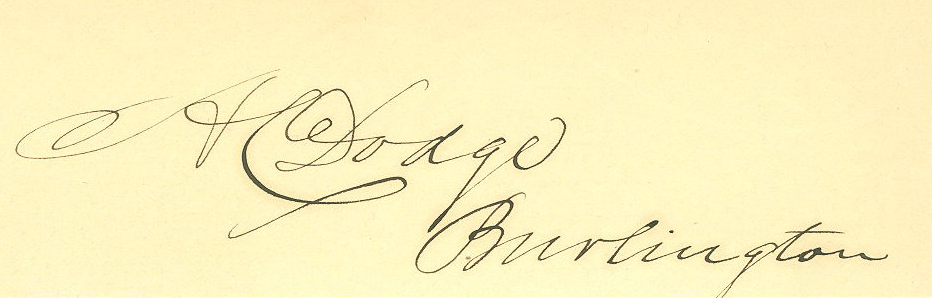 A C Dodge
Burlington